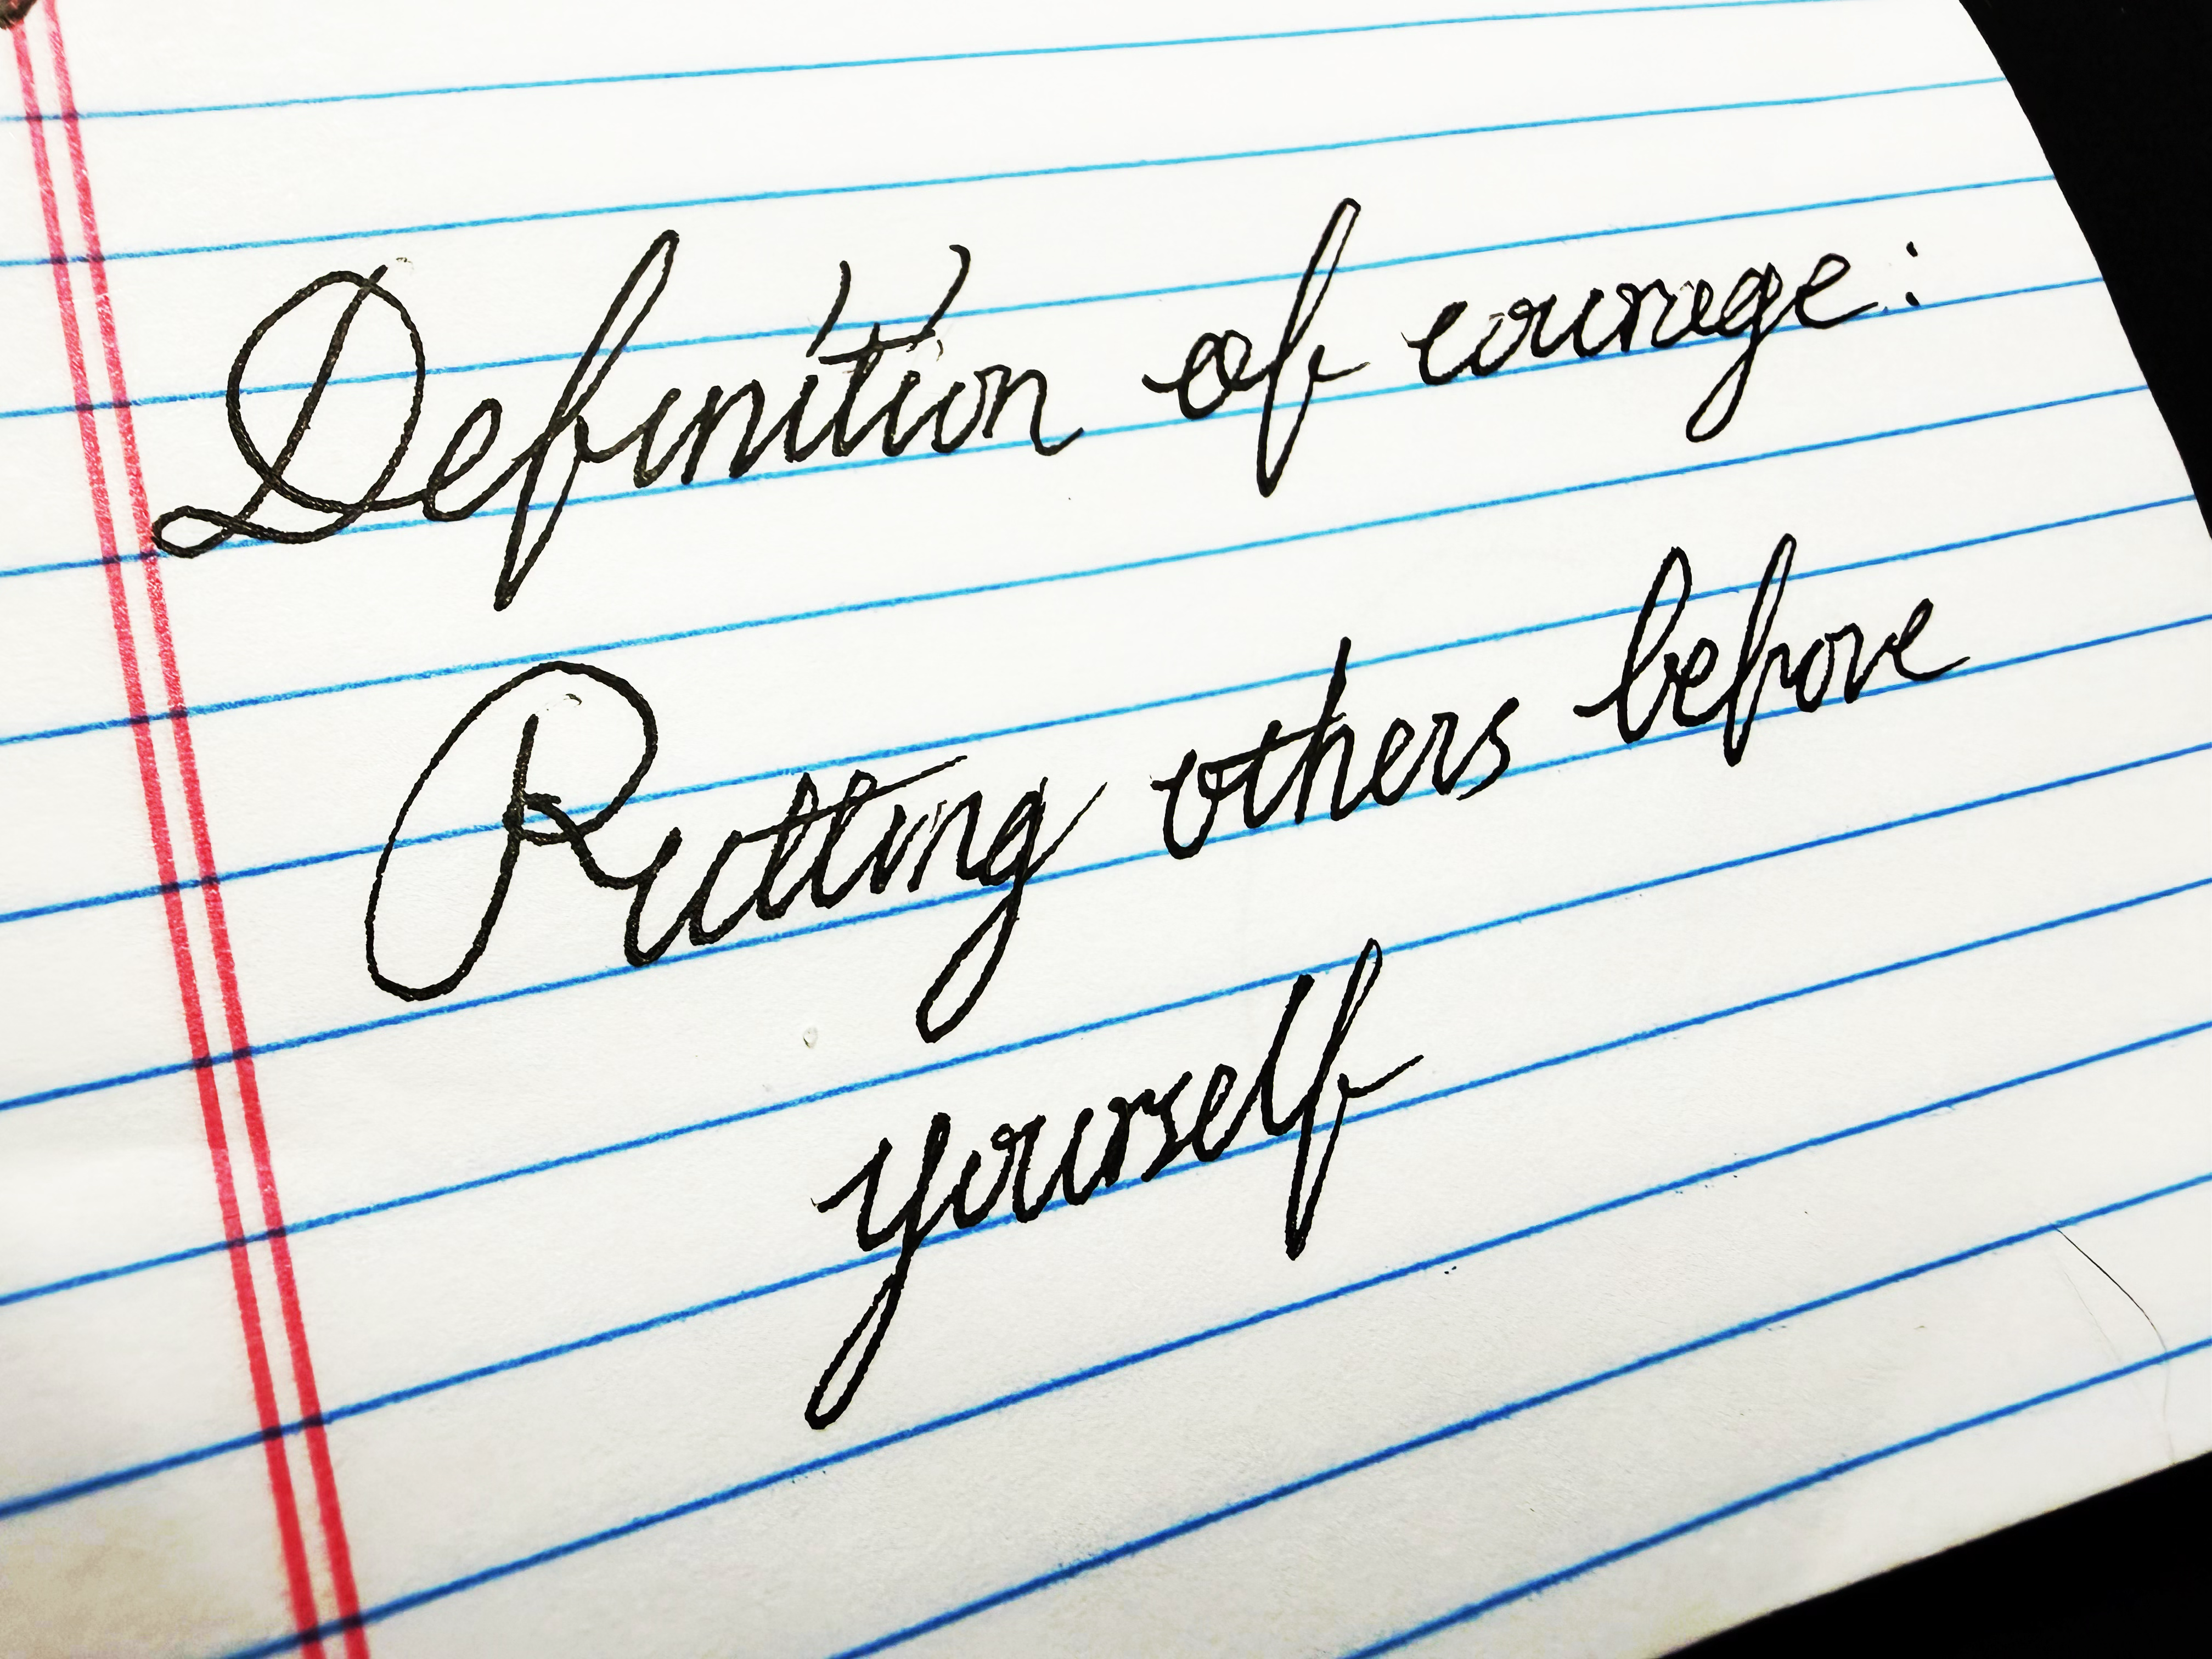 Definition of courage:
Putting others before
yourself